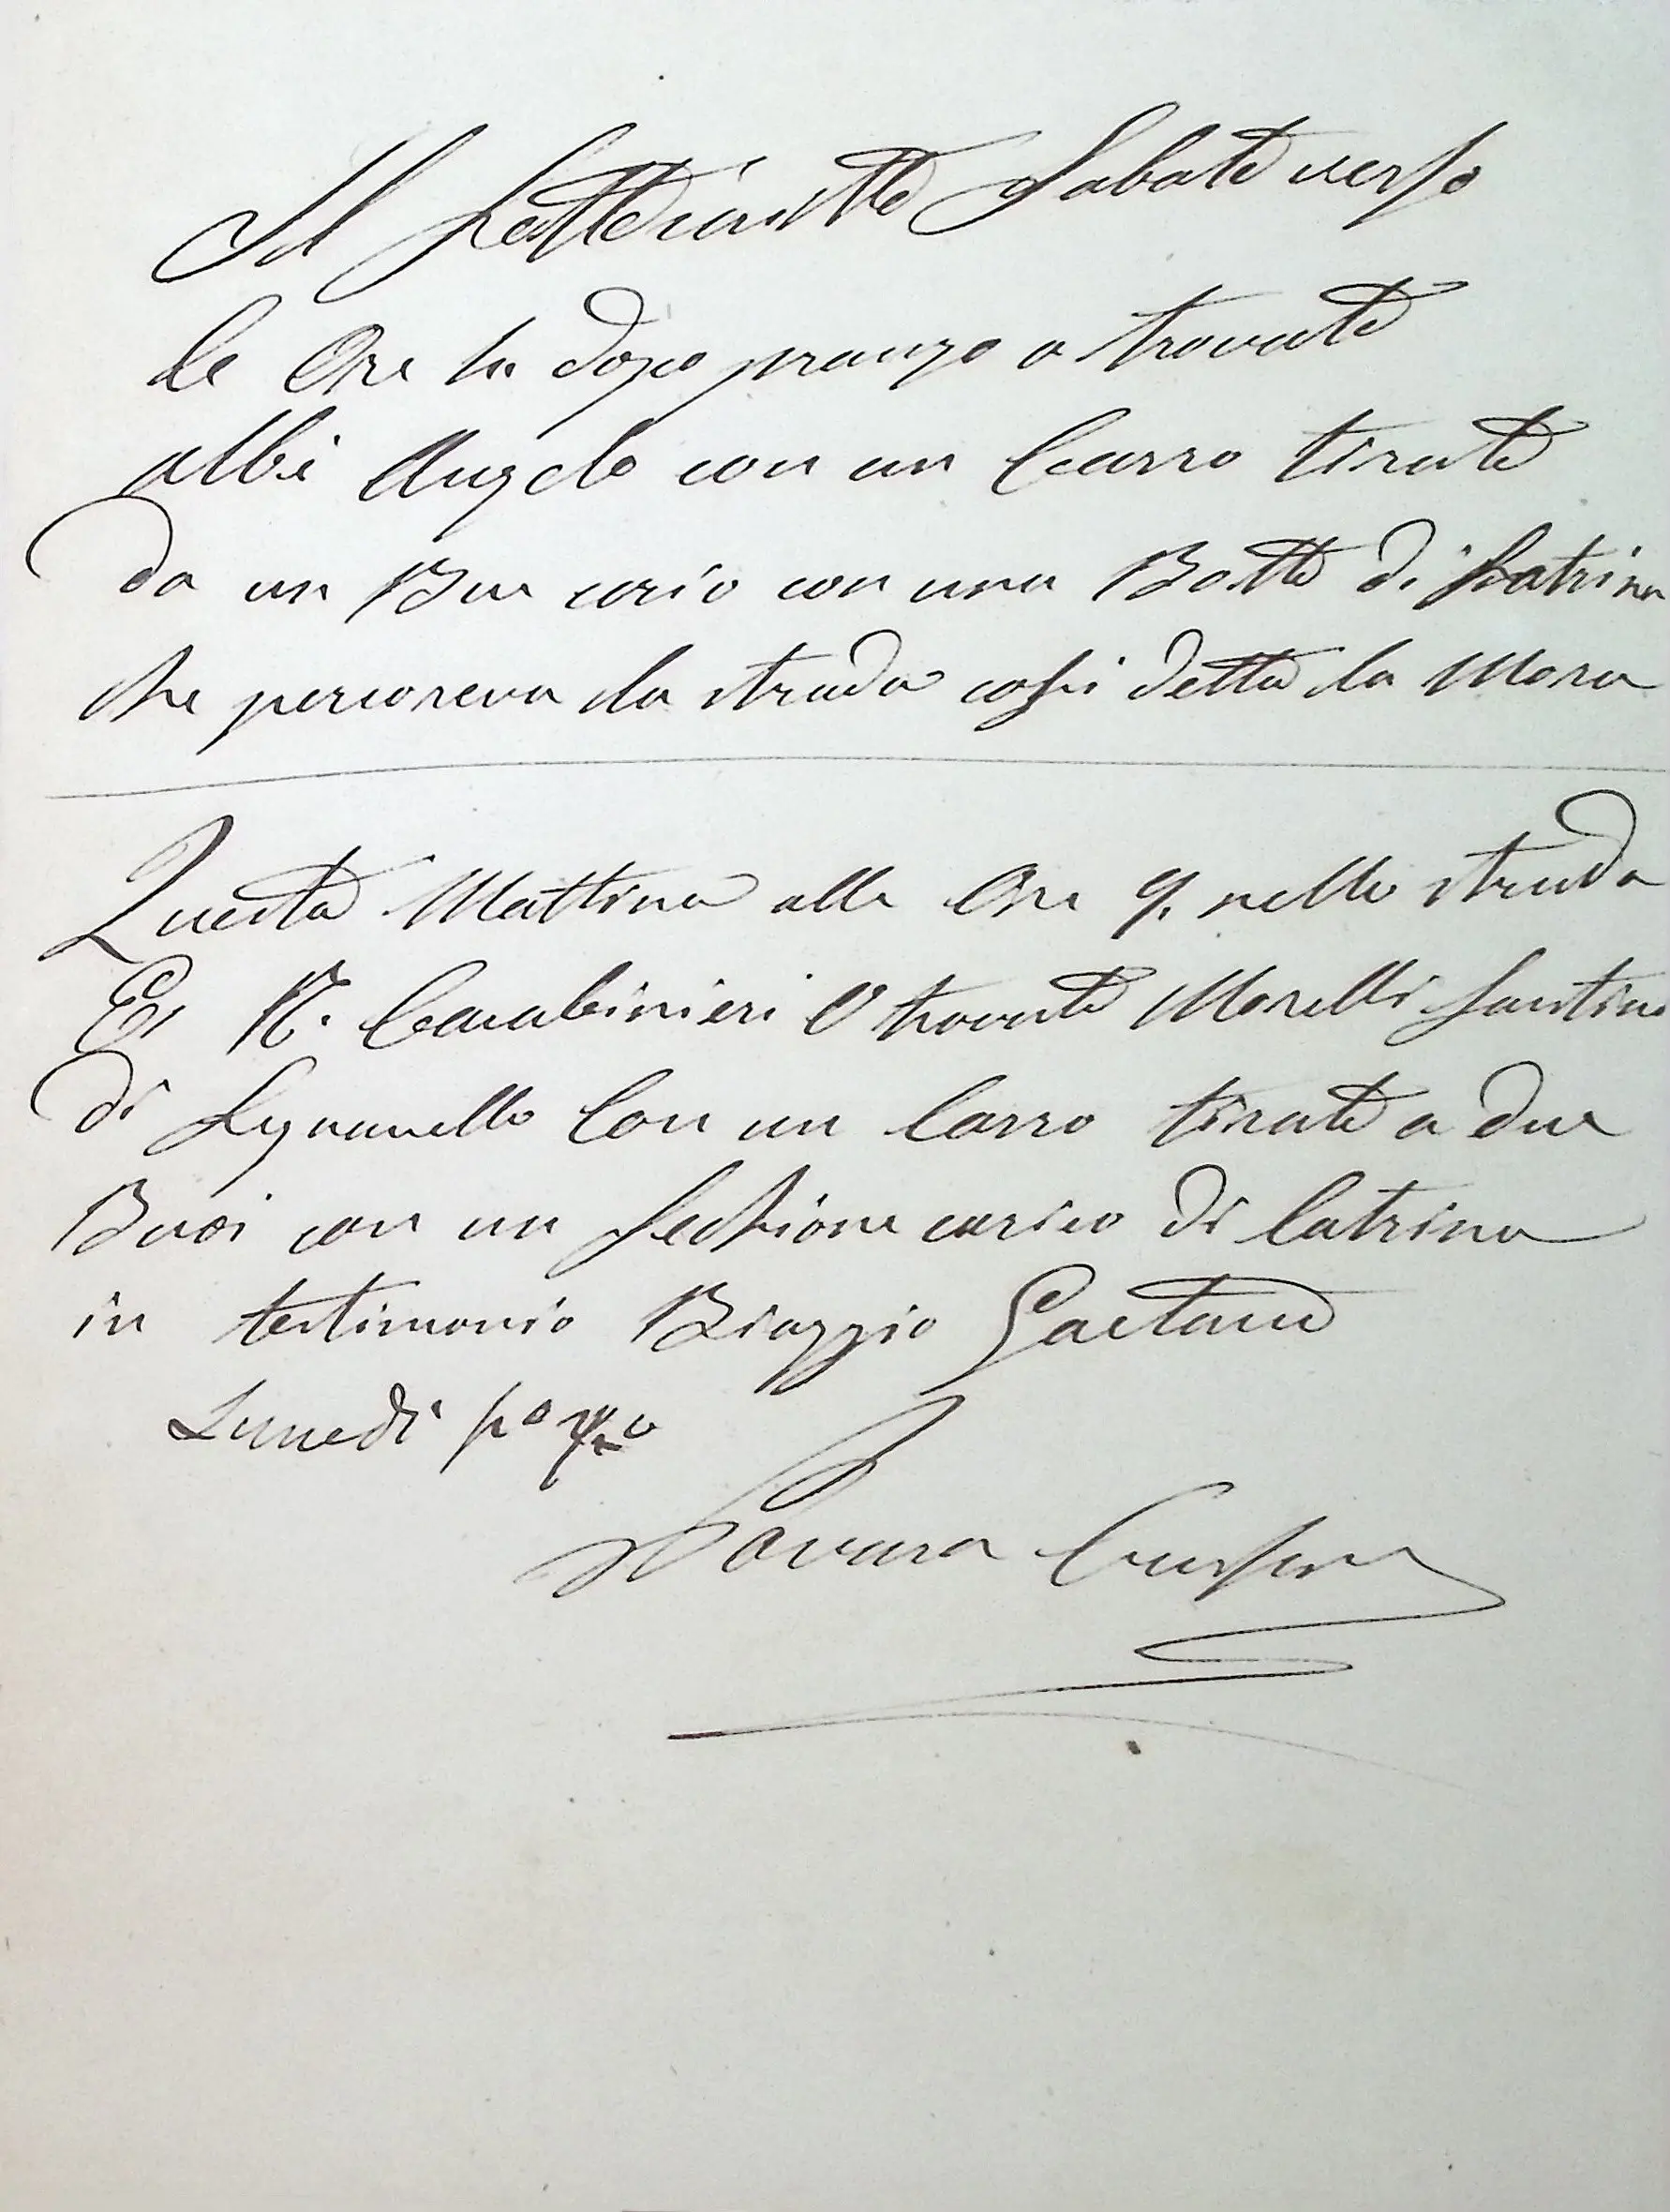 Il sottoscritto Sabato verso
le Ore 4. dopo pranzo a trovato
Albè Angelo con un Carro tirato
da un Bue carico con una Botte di Latrina
che percoreva la strada cossi detta la Mora
Questa Mattina alle Ore 9. nella strada
Ei R. Carabinieri O trovato Morelli Santino
di Legnanello Con un Carro tirato a due
Buoi con un carico di latrina
in testimonio Biaggio Gaetano
Lunedi po
Savara Cursore